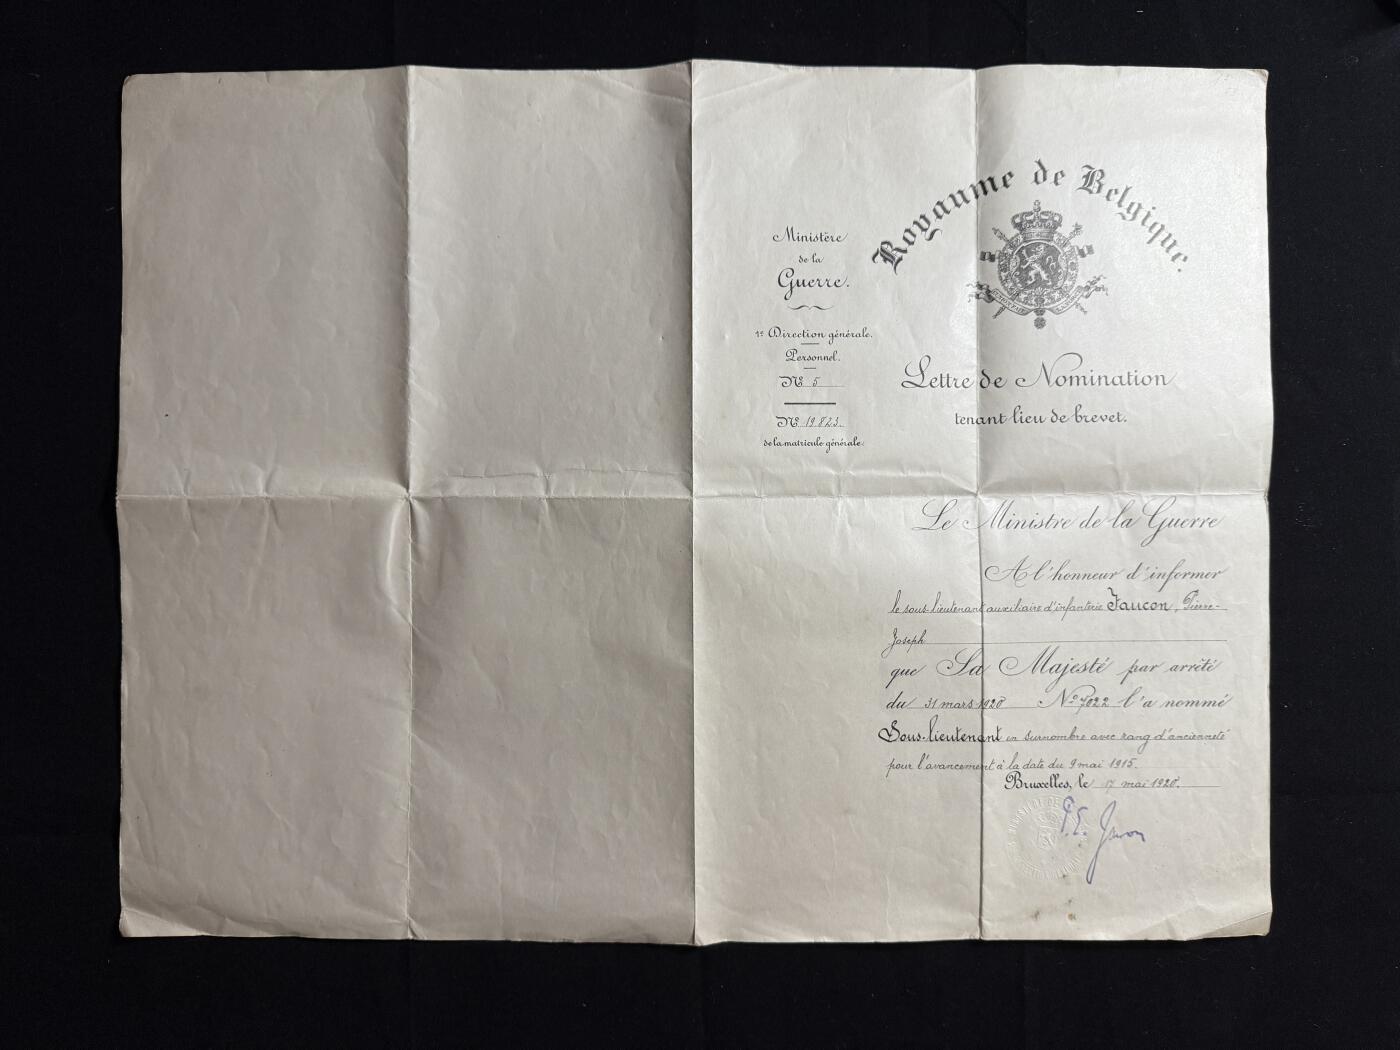 Royaume de Belgique.
Ministère
de la
Guerre.
1e Direction générale.
Personnel.
No 5
No 19823.
de la matricule générale.
Lettre de Nomination
tenant lieu de brevet.
Le Ministre de la Guerre
A l'honneur d'informer
le sous-lieutenant auxiliaire d'infanterie Faucon, Pierre-
Joseph
que Sa Majesté par arrêté
du 31 mars 1920 No 7022 l'a nommé
Sous-lieutenant en surnombre avec rang d'ancienneté
pour l'avancement à la date du 9 mai 1915.
Bruxelles, le 17 mai 1920.